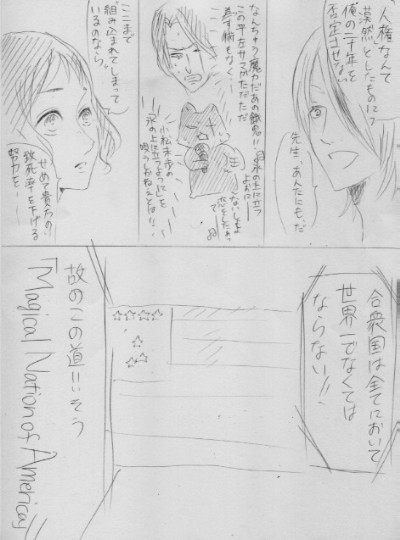 「人権」なんて
漠然としたものには
俺の二十年を
否定させない
先生、あんたにも、だ
なんちゅう魔力だあの獣鬼!!
この平左サマがただただ
為す術もなく…
氷の上に立つ
ように
小松未歩の
氷の上に立つように を
ここまで
"組み込まれてしまって"
いるのなら、
せめて貴方の
致死率を下げる
努力を…
合衆国は全てにおいて
世界一でなくては
ならない!!
故のこの道!!そう
「Magical Nation of America」